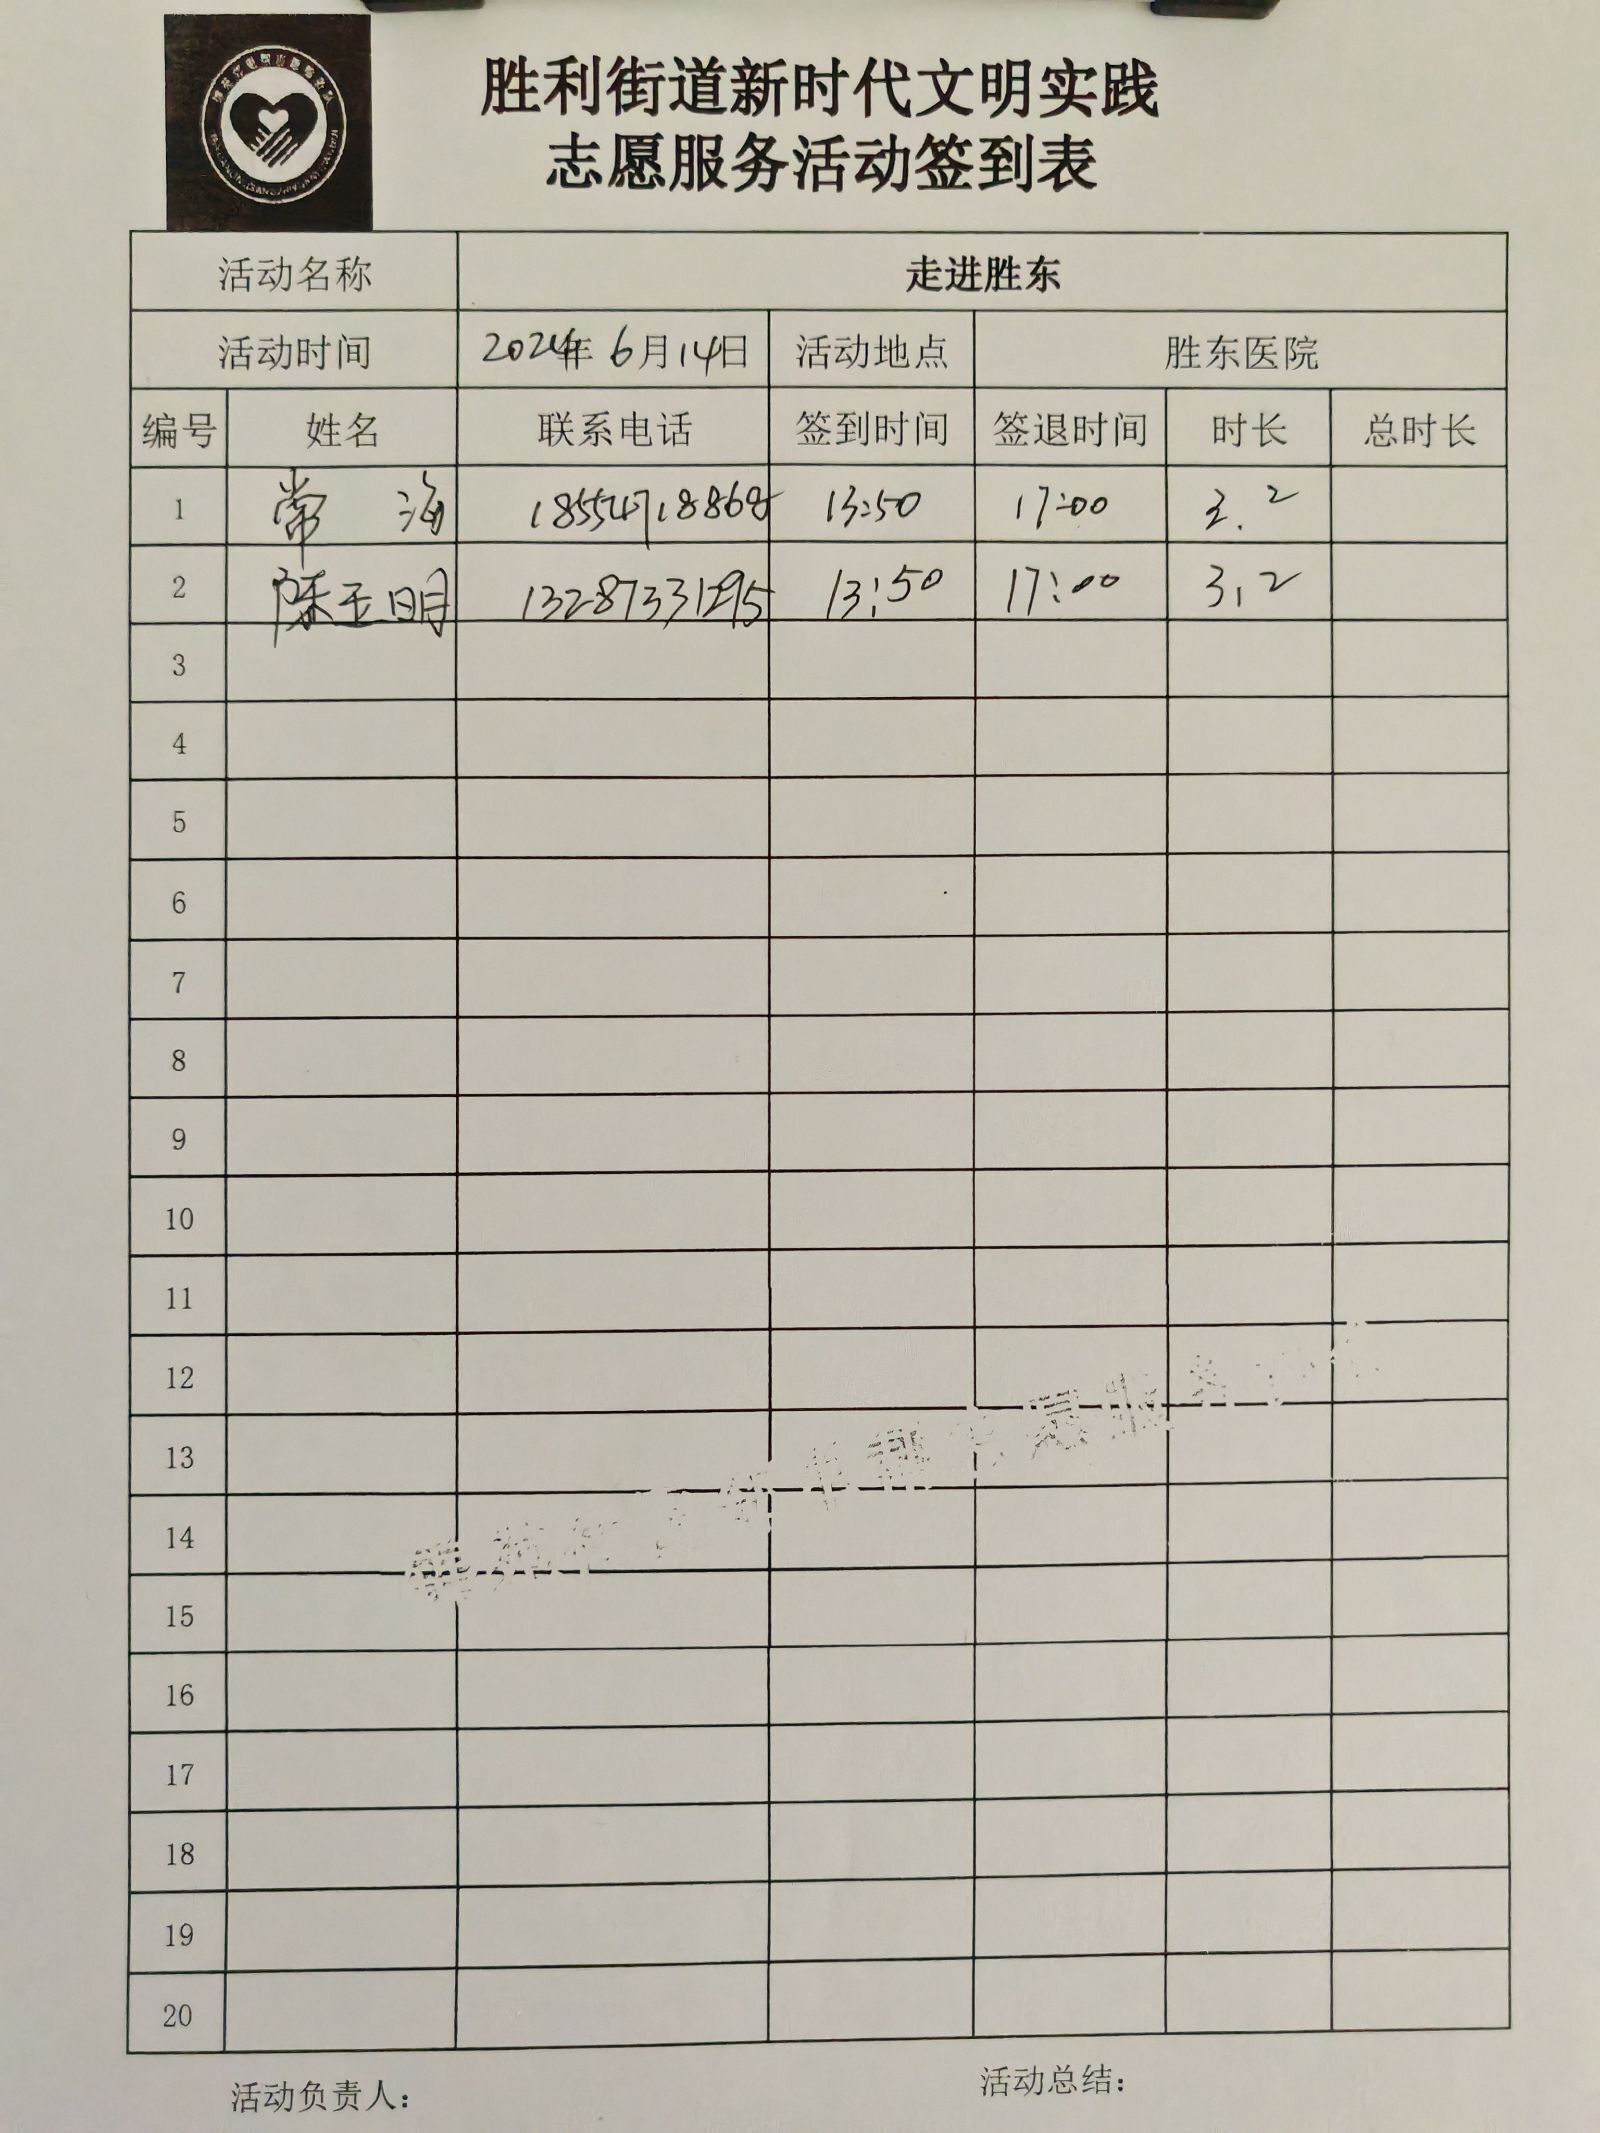 胜利街道新时代文明实践
志愿服务活动签到表
活动名称 走进胜东
活动时间 2024年 6月14日 活动地点 胜东医院
编号 姓名 联系电话 签到时间 签退时间 时长 总时长
1 常 海 13:50 17:00 3.2
2 陈玉明 13287331295 13:50 17:00 3.2
3
4
5
6
7
8
9
10
11
12
13
14
15
16
17
18
19
20
活动负责人： 活动总结：